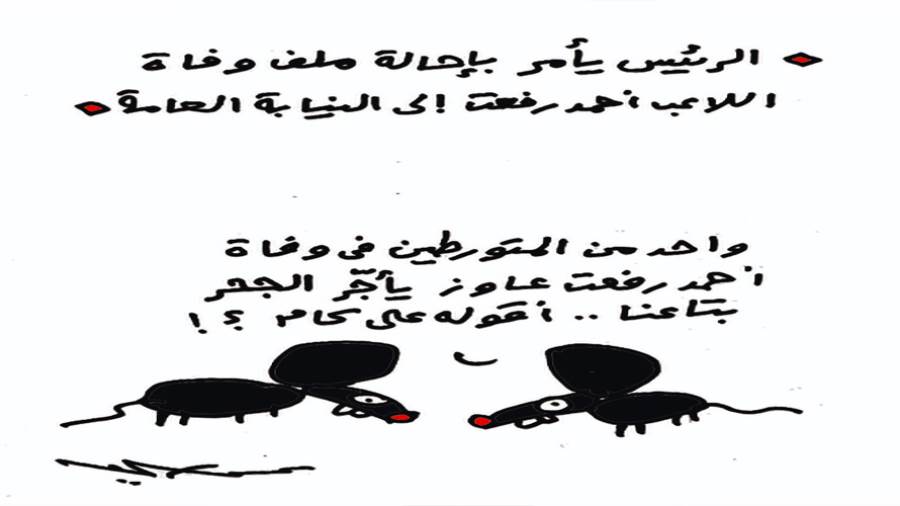 الرئيس يأمر بإحالة ملف وفاة
اللاعب أحمد رفعت إلى النيابة العامة
واحد من المتورطين فى وفاة
أحمد رفعت عاوز يأجّر الجحر
بتاعنا .. أقوله على كام ؟!